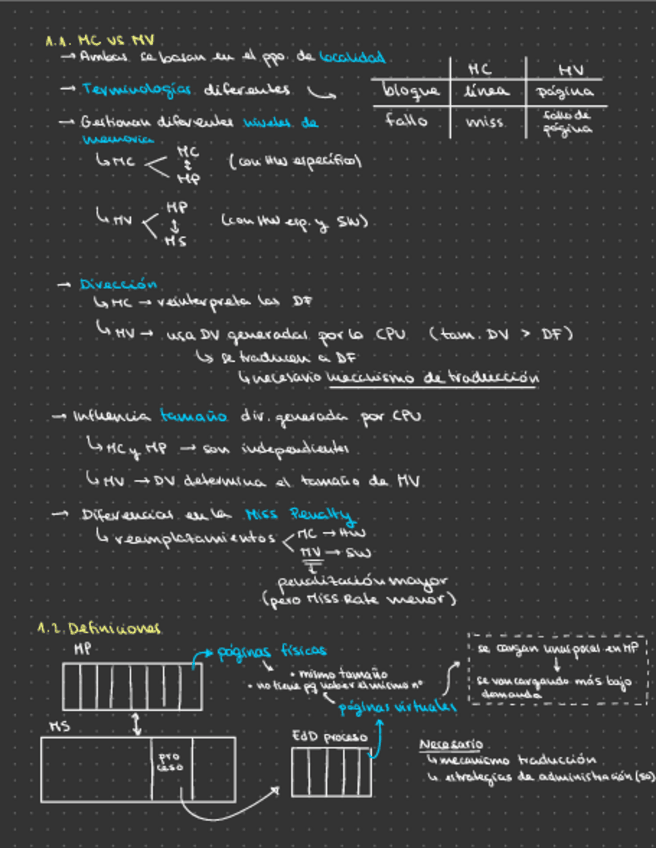 1.1. MC VS MV
→ Ambas se basan en el ppo. de localidad
→ Terminologías diferentes
MC MV
bloque línea página
fallo miss fallo de página
→ Gestionan diferentes niveles de memoria
↳ MC < MC ↕ MP (con HW específico)
↳ MV < MP ↕ MS (con HW esp. y SW)
→ Dirección
↳ MC → reinterpreta las DF
↳ MV → usa DV generadas por la CPU (tam. DV > DF)
↳ se traducen a DF
↳ necesario mecanismo de traducción
→ Influencia tamaño dir. generada por CPU
↳ MC y MP → son independientes
↳ MV → DV determina el tamaño de MV
→ Diferencias en la Miss Penalty
↳ reemplazamientos < MC → HW
MV → SW
penalización mayor
(pero Miss Rate menor)
1.2. Definiciones
MP
páginas físicas
• mismo tamaño
• no tiene pq haber el mismo nº
páginas virtuales
se cargan unas pocas en MP
↓
se van cargando más bajo
demanda
MS
pro
ceso
EdD proceso
Necesario
↳ mecanismo traducción
↳ estrategias de administración (SO)